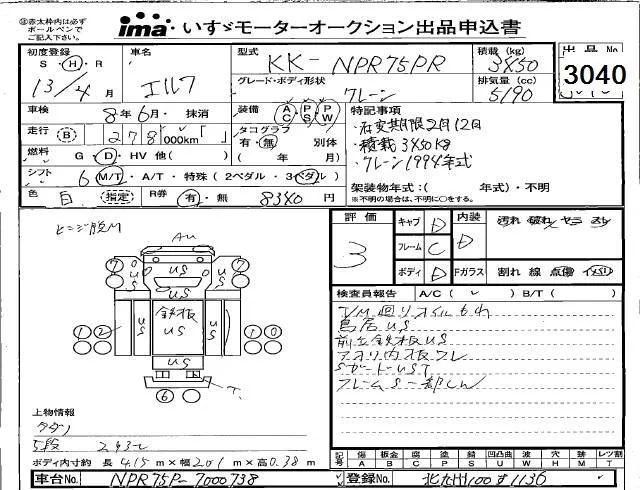 ※赤太枠内は必ずボールペンでご記入下さい。
ima いすゞモーターオークション出品申込書
初度登録 S・H・R 13/4月
車名 エルフ
型式 KK-NPR75PR
グレード・ボディ形状 クレーン
積載(kg) 3450
排気量(cc) 5190
出品No 3040
車検 8年6月・抹消
走行 B 278,000km
燃料 G・D・HV 他( )
シフト 6 M/T・A/T・特殊(2ペダル・3ペダル)
色 白 (指定) R券 有・無 8340円
装備 AC・PS・PW
タコグラフ 有・無 別体 ( 年 月)
特記事項
・積載3450kg
・クレーン1994年式
架装物年式:( 年式)・不明
※不明の場合は、不明に○をする。
評価 3
キャブ D
フレーム C
ボディ D
内装 D
Fガラス 割れ 線 点傷
検査員報告 A/C( ✓ ) B/T( )
T/M廻りオイルもれ
鳥居US
前立鉄板US
アオリ内板ワレ
SガードUST
AU
7 7
US
US
鉄板
US
US
US
1 2
1 0
US
6
T
上物情報
タダノ
5段 2.93t
ボディ内寸約 長 4.15m×幅 2.01m×高 0.38m
記号 傷A 板金B 腐C 塗P 錆S 凹凸曲U 波W 穴H 跡M レツ割T
車台No. NPR75P-7000738
登録No. 北九州100す1136